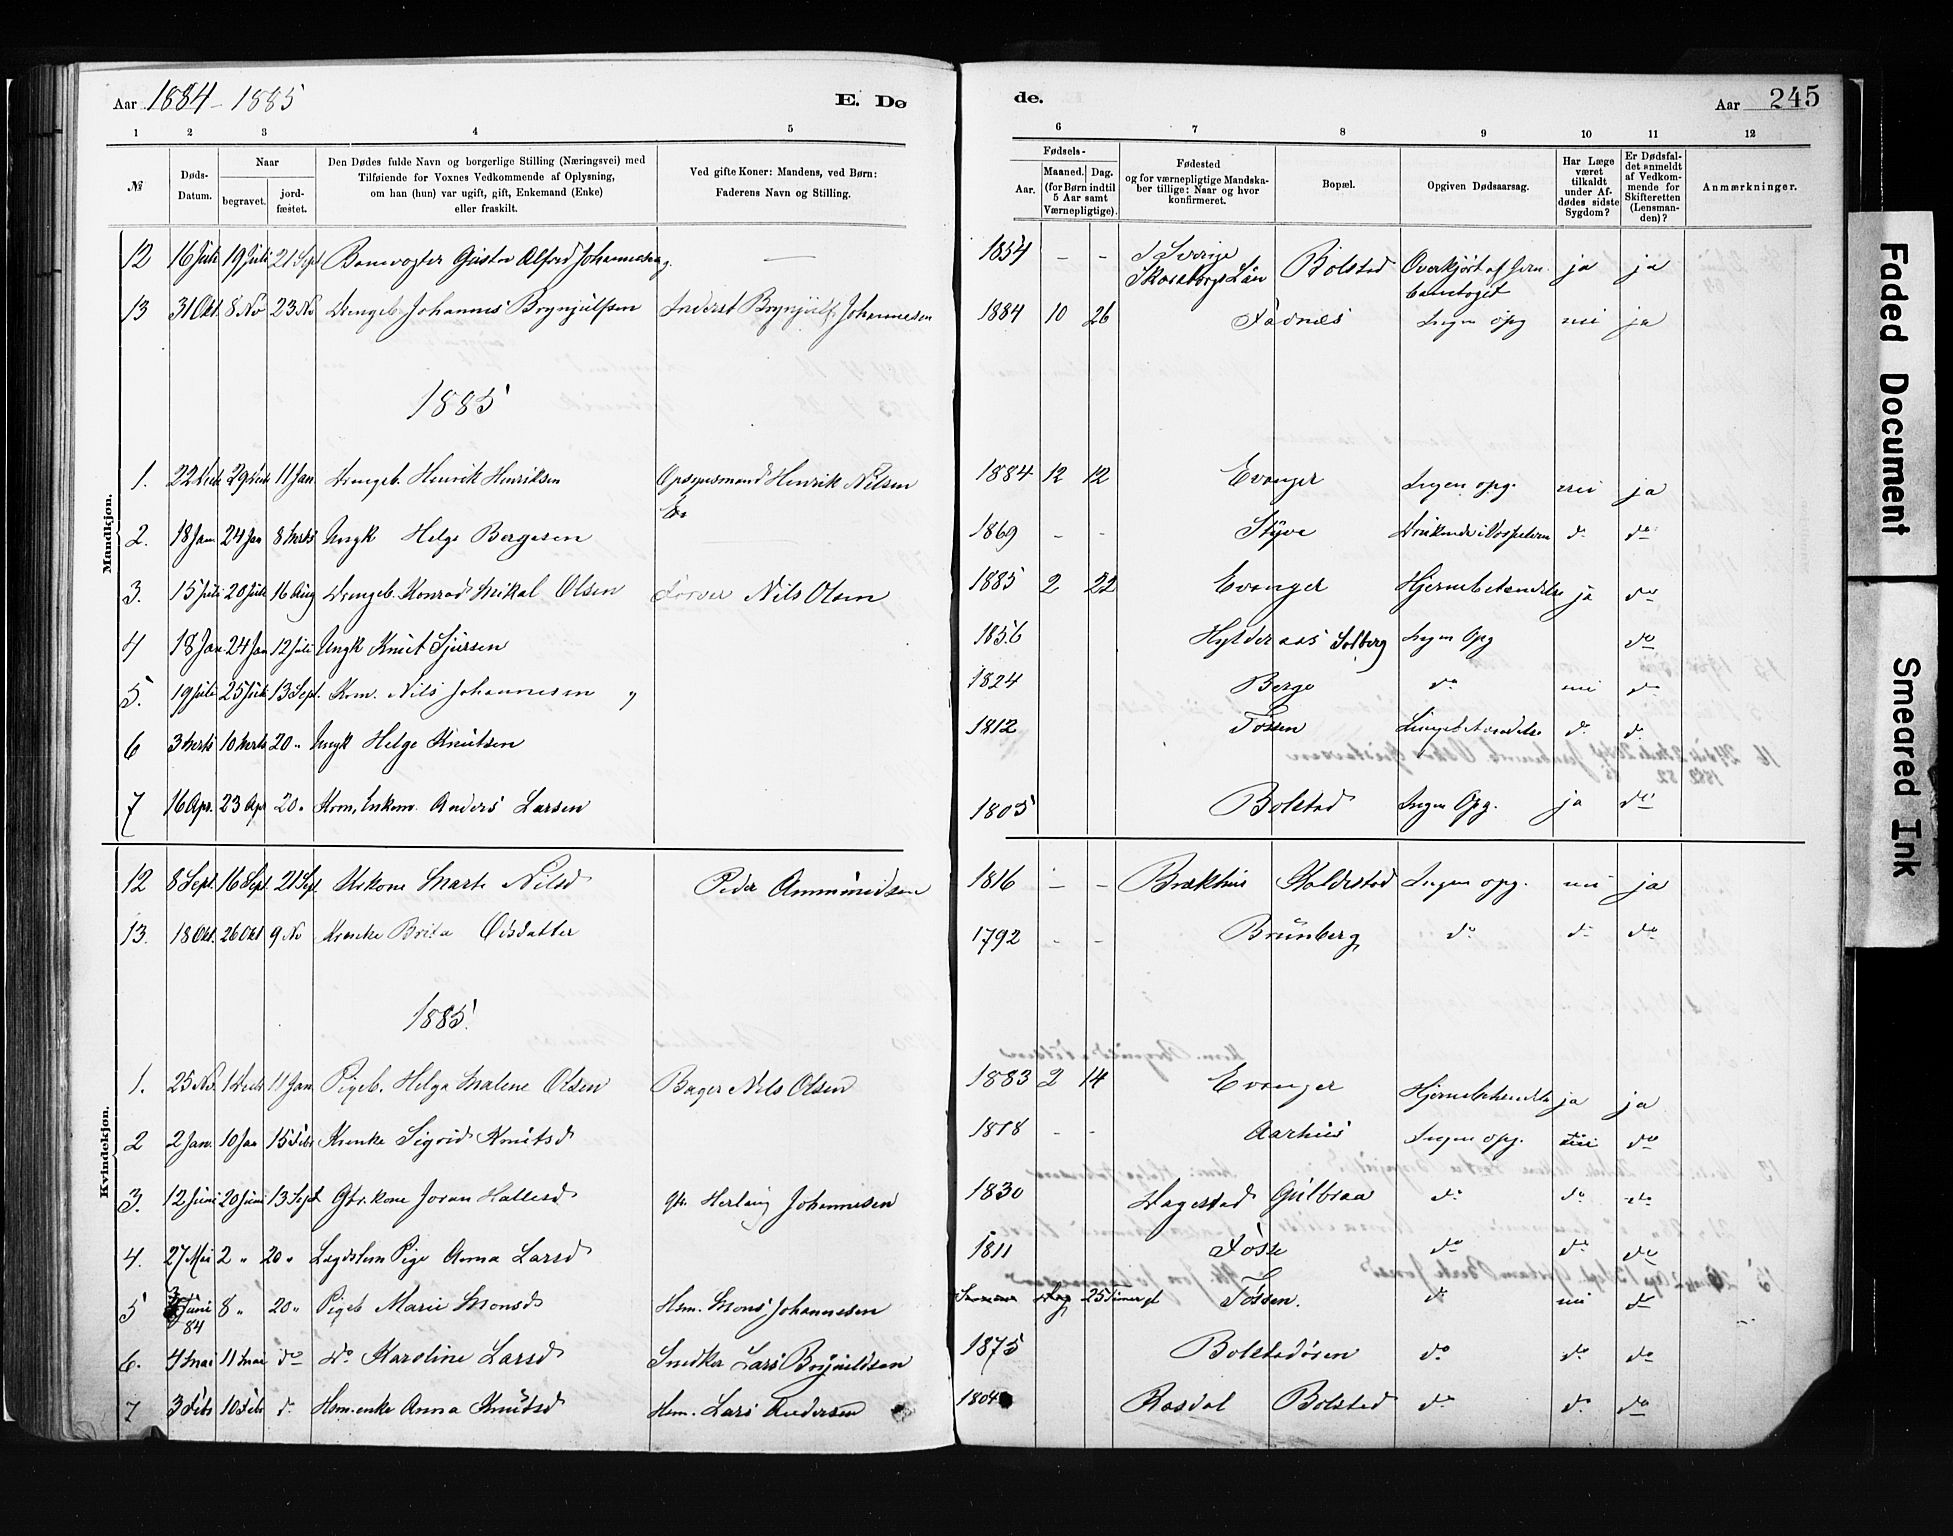 Aar 1884-1885 E. Dø de. Aar 245
1 2 3 4 5 6 7 8 9 10 11 12
№ Døds-Datum. Naar begravet. jordfæstet. Den Dødes fulde Navn og borgerlige Stilling (Næringsvei) med Tilføiende for Voxnes Vedkommende af Oplysning, om han (hun) var ugift, gift, Enkemand (Enke) eller fraskilt. Ved gifte Koner: Mandens, ved Børn: Faderens Navn og Stilling. Fødsels- Aar. Maaned. Dag. (for Børn indtil 5 Aar samt Værnepligtige). Fødested og for værnepligtige Mandskaber tillige: Naar og hvor konfirmeret. Bopæl. Opgiven Dødsaarsag. Har Læge været tilkaldt under Afdødes sidste Sygdom? Er Dødsfaldet anmeldt af Vedkommende for Skifteretten (Lensmanden)? Anmærkninger.
Mandkjøn.
12 16 Juli 19 Juli 21 Sept Banevogter Gustav Alfred Johannesen — 1854 - - I Sverige Skaraborgs Län Bolstad Overkjørt af Jernbanetoget ja ja
13 31 Okt 8 No 23 No Drengeb. Johannes Brynjulfsen Inderst Brynjulf Johannesen 1884 10 26 Fadnes Ingen opg nei ja
1885
1. 22 Decb 29 Decb 11 Jan Drengeb. Henrik Henriksen Opsynsmand Henrik Nilsen 1884 12 12 Evanger Ingen opg. nei ja
2. 18 Jan 24 Jan 8 Marts Ungk Helge Bergesen 1869 - - Styve Druknede i Vospelven do do
3. 15 Juli 20 Juli 16 Aug Drengeb. Konrad Mikal Olsen Farver Nils Olsen 1885 2 22 Evanger Hjernebetændelse ja do
4 18 Jan 24 Jan 12 Juli Ungk Knut Sjursen 1856 Hylderaas Solberg Ingen Opg do
5. 19 Juli 25 Juli 13 Sept. Kom. Nils Johannesen 1824 Berge do nei do
6 3 Marts 10 Marts 20 " Ungk Helge Knutsen 1812 Fossen Lungebetændelse do do
7 16 Apr. 23 Apr 20 " Hsm, Enkem. Anders Larsen 1805 Bolstad Ingen Opg. ja do
Kvindekjøn.
12 8 Sept. 16 Sept. 21 Sept. Kone Marta Nilsd Peder Ammundsen 1816 - - Brækhus Kaldestad Ingen opg. nei ja
13. 18 Okt. 26 Okt 9 No Enke Brita Odsdatter 1792 - - Brunberg do do do
1885
1. 25 No. 1 Decb 11 Jan Pigeb. Helga Malene Olsen Bager Nils Olsen 1883 2 14 Evanger Hjernebetændelse ja ja
2 2 Jan. 10 Jan 15 Febr Enke Sigrid Knutsd 1818 - - Aarhus Ingen opg. nei do
3. 12 Juni 20 Juni 13 Sept Gbr. kone Joran Hallesd Gbr. Herlaug Johannesen 1830 Hagestad Gulbraa do do do
4. 27 Mai 2 " 20 " Lægdslem Pige Anna Larsd 1811 Fosse do do do
5 3 Juni 84 8 " 20 " Pigeb Marie Monsd Hsm. Mons Johannesen 25 Timer gl Fossen. do nei do
6. 4 Mai 11 Mai do do Karoline Larsd Snedker Lars Brynildsen 1875 Bolstadøren do do do
7 3 Feb 10 Feb do Hsm. enke Anna Knutsd Hsm. Lars Andersen 1804 Rasdal Bolstad do do do
Faded Document
Smeared Ink